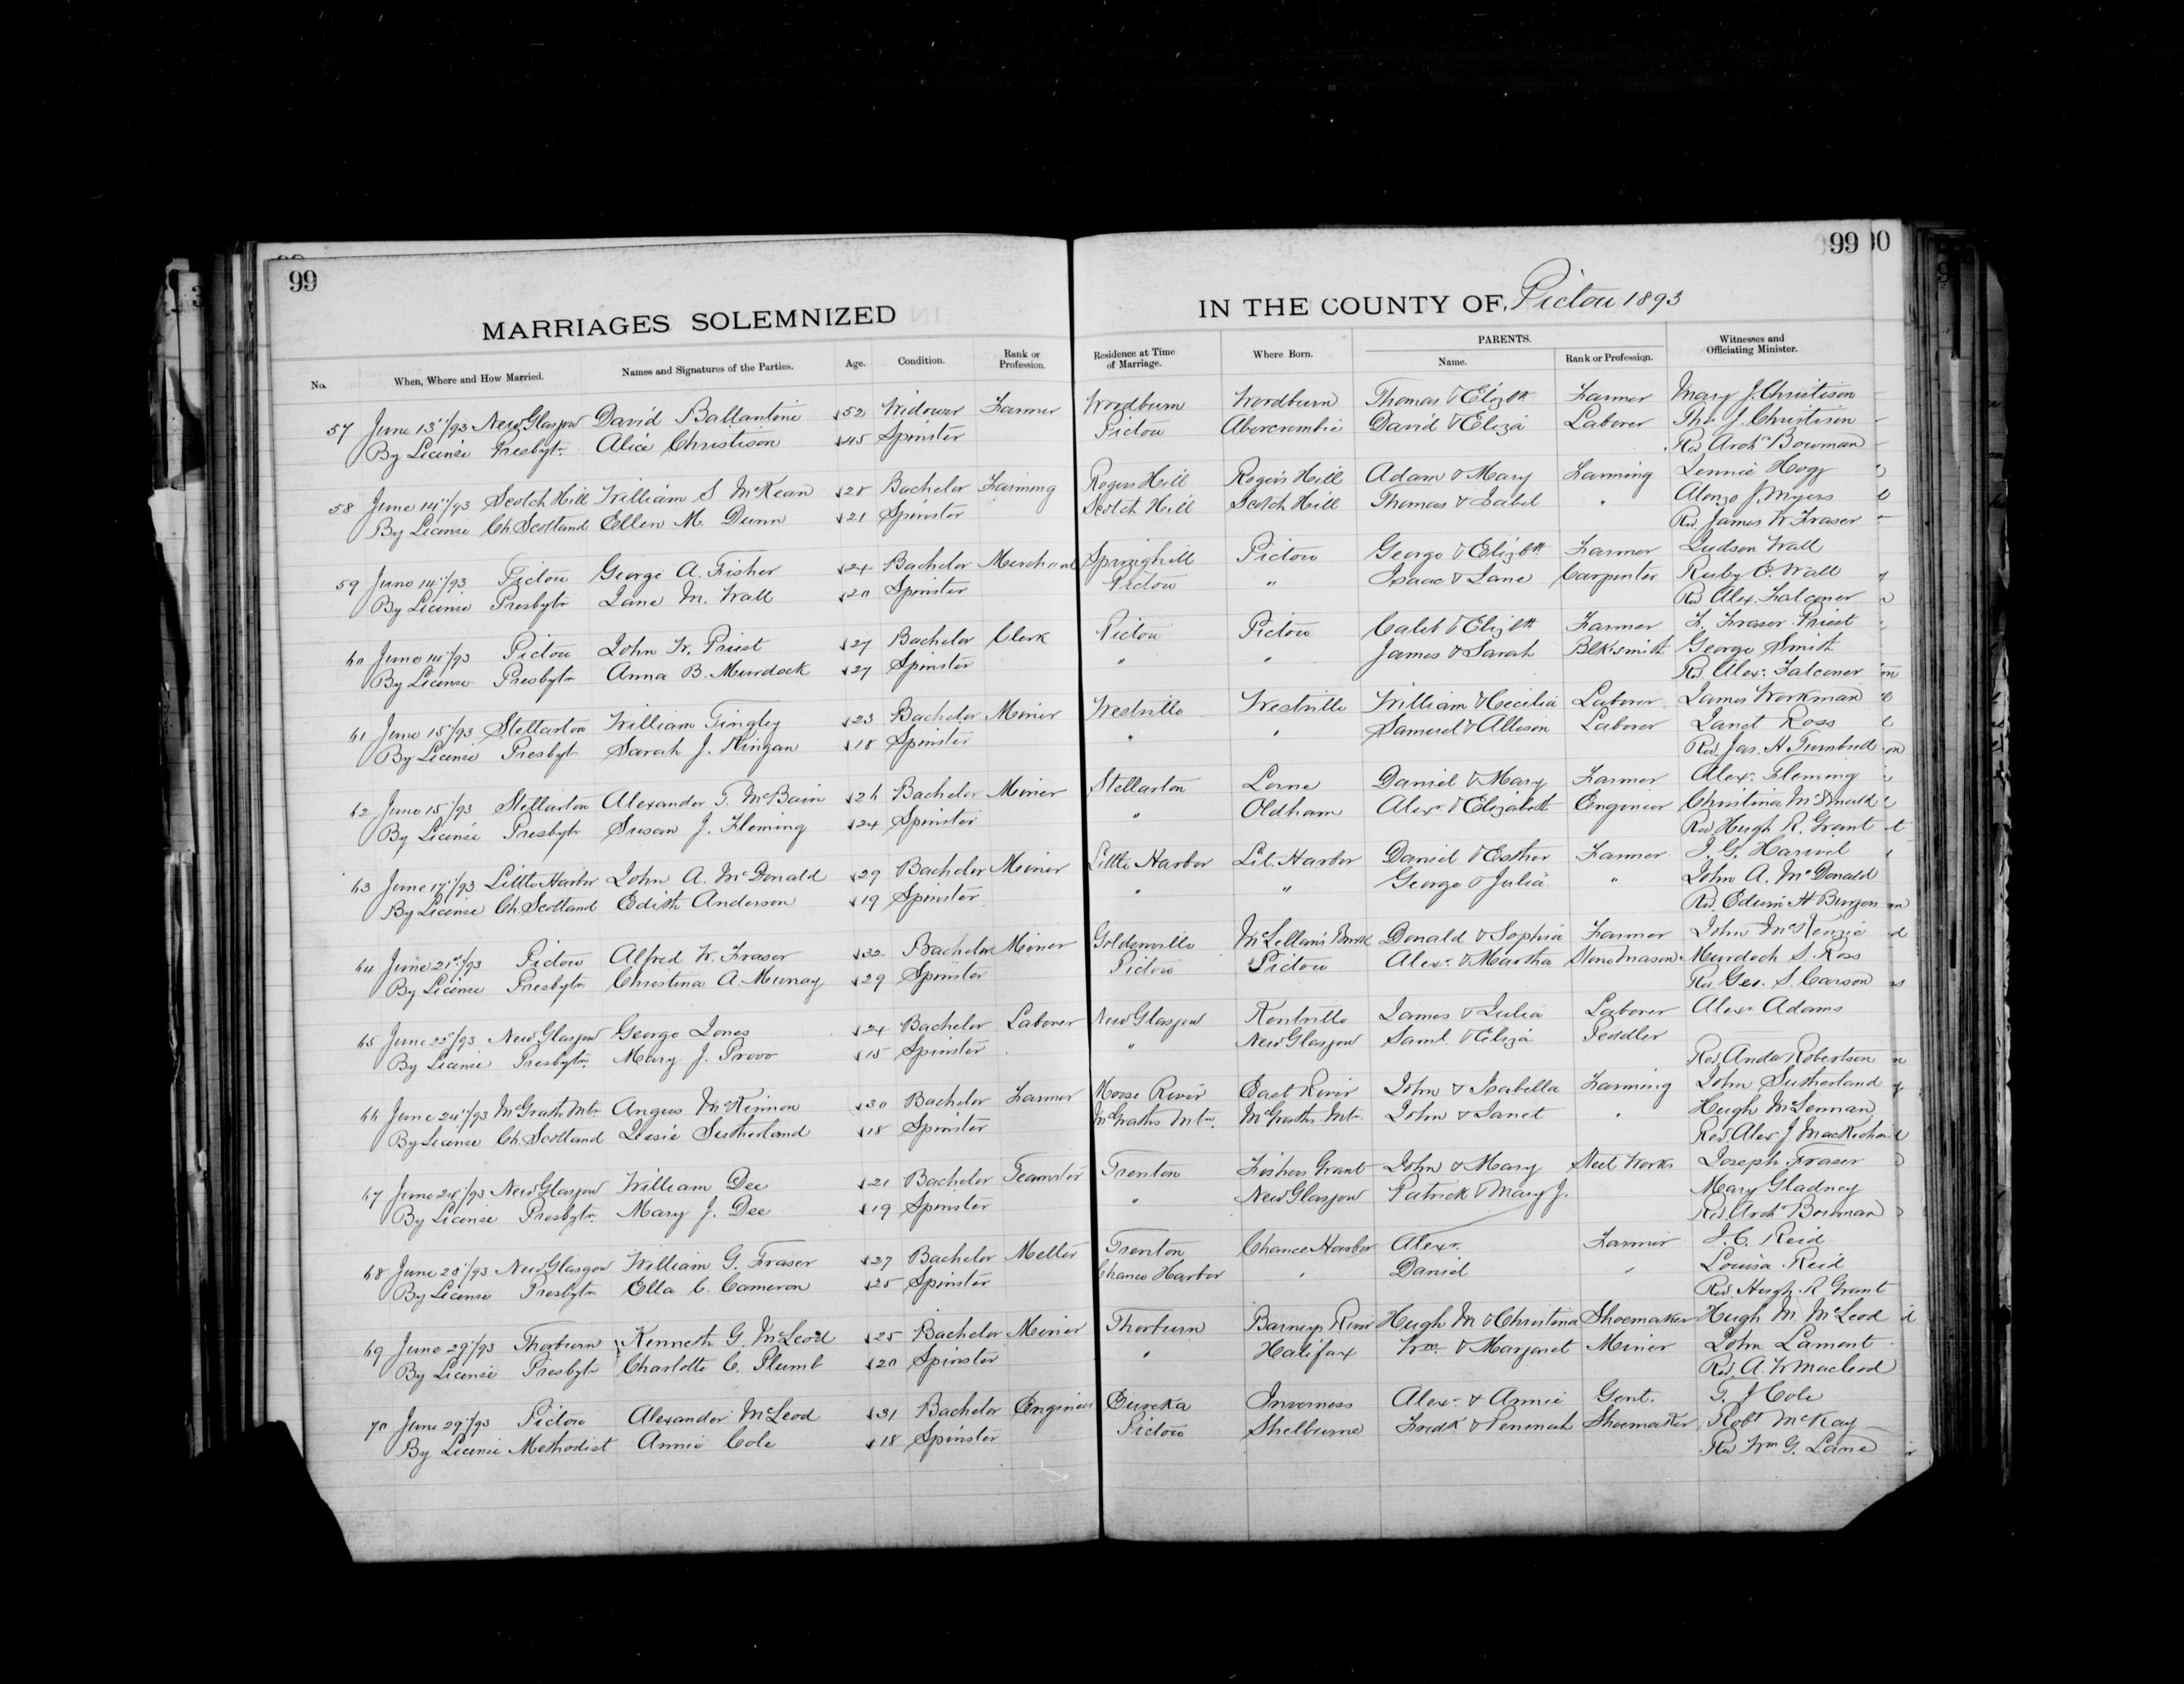 99
99
MARRIAGES SOLEMNIZED IN THE COUNTY OF Pictou 1893
No. When, Where and How Married. Names and Signatures of the Parties. Age. Condition. Rank or Profession. Residence at Time of Marriage. Where Born. PARENTS. Name. Rank or Profession. Witnesses and Officiating Minister.
57 June 13"/93 New Glasgow David Ballantine 52 Widower Farmer Woodburn Woodburn Thomas & Elizbth Farmer Mary J. Christison
By License Presbytn Alice Christison 45 Spinster Pictou Abercrombie David & Eliza Laborer Tho. J. Christison
Rev. Archd Bowman
58 June 14"/93 Scotch Hill William S McKean 28 Bachelor Farming Rogers Hill Rogers Hill Adam & Mary Farming Jennie Hogg
By License Ch. Scotland Ellen M. Dunn 21 Spinster Scotch Hill Scotch Hill Thomas & Isabel " Alonzo J. Myers
Rev. James W. Fraser
59 June 14"/93 Pictou George A. Fisher 24 Bachelor Merchant Springhill Pictou George & Elizbth Farmer Judson Wall
By License Presbytn Jane M. Wall 20 Spinster Pictou " Isaac & Jane Carpenter Ruby E. Wall
Rev. Alex. Falconer
60 June 14"/93 Pictou John W. Priest 27 Bachelor Clerk Pictou Pictou Caleb & Elizbth Farmer F. Fraser Priest
By License Presbytn Anna B. Murdock 27 Spinster " " James & Sarah Blksmith George Smith
Rev. Alexr. Falconer
61 June 15"/93 Stellarton William Tingley 23 Bachelor Miner Westville Westville William & Cecilia Laborer James Workman
By License Presbytn Sarah J. 18 Spinster " " Samuel & Allison Laborer Janet Ross
Rev. Jas. H Turnbull
62 June 15"/93 Stellarton Alexander T. McBain 26 Bachelor Miner Stellarton Lorne Daniel & Mary Farmer Alexr. Fleming
By License Presbytn Susan J. Fleming 24 Spinster " Oldham Alexr & Elizabeth Engineer Christina McDonald
Rev. Hugh R. Grant
63 June 17"/93 Little Harbor John A. McDonald 29 Bachelor Miner Little Harbor Lit. Harbor Daniel & Esther Farmer J. G.
By License Ch. Scotland Edith Anderson 19 Spinster " " George & Julia " John A. McDonald
Rev. Edwin H Burgess
64 June 21st/93 Pictou Alfred W. Fraser 32 Bachelor Miner Goldenville McLellan's Brook Donald & Sophia Farmer John McKenzie
By License Presbytn Christina A. Murray 29 Spinster Pictou Pictou Alexr. & Martha Stone Mason Murdoch S. Ross
Rev. Geo. S. Carson
65 June 25"/93 New Glasgow George Jones 24 Bachelor Laborer New Glasgow Kentville James & Julia Laborer Alexr Adams
By License Presbytn. Mary J. Provo 15 Spinster " New Glasgow Saml. & Eliza Peddler
Rev. Andw Robertson
66 June 24"/93 McGrath Mtn Angus McKinnon 30 Bachelor Farmer Moose River East River John & Isabella Farming John Sutherland
By License Ch. Scotland Jessie Sutherland 18 Spinster McGraths Mtn. McGraths Mtn John & Janet " Hugh McLennan
Rev. Alex J MacKichan
67 June 24"/93 New Glasgow William Dee 21 Bachelor Teamster Trenton Fishers Grant John & Mary Steel Works Joseph Fraser
By License Presbytn. Mary J. Dee 19 Spinster " New Glasgow Patrick & Mary J. Mary Gladney
Rev. Archd Bowman
68 June 28"/93 New Glasgow William G. Fraser 27 Bachelor Melter Trenton Chance Harbor Alexr. Farmer J. C. Reid
By License Presbytn Ella C. Cameron 25 Spinster Chance Harbor " Daniel " Louisa Reid
Rev. Hugh R Grant
69 June 29"/93 Thorburn Kenneth G. McLeod 25 Bachelor Miner Thorburn Barneys River Hugh M & Christina Shoemaker Hugh M. McLeod
By License Presbytn Charlotte C. Plumb 20 Spinster " Halifax Wm. & Margaret Miner John Lamont
Rev. A. W Macleod
70 June 29"/93 Pictou Alexander McLeod 31 Bachelor Engineer Eureka Inverness Alexr. & Annie Gent. T. J Cole
By License Methodist Annie Cole 18 Spinster Pictou Shelburne Fredk & Penninah Shoemaker Robt McKay
Rev Wm G. Lane